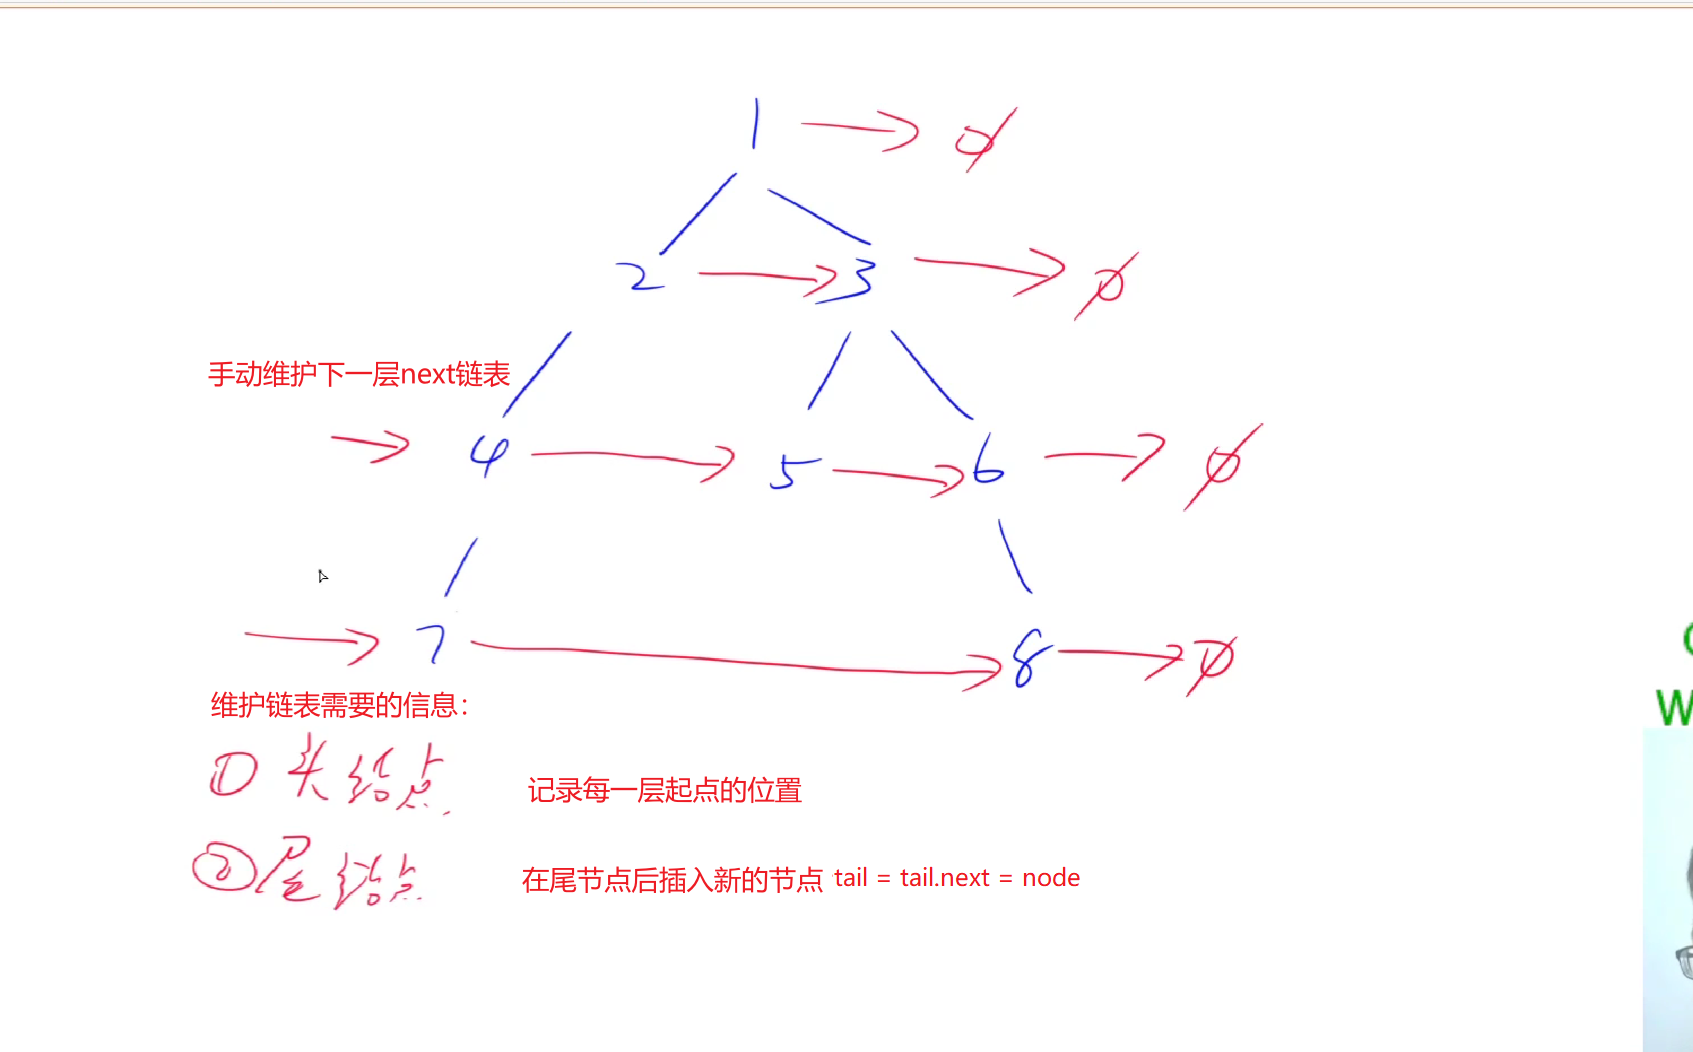 1 → ∅
2 → 3 → ∅
手动维护下一层next链表
→ 4 → 5 → 6 → ∅
→ 7 → 8 → ∅
维护链表需要的信息：
① 头结点 记录每一层起点的位置
② 尾结点 在尾节点后插入新的节点 tail = tail.next = node
W